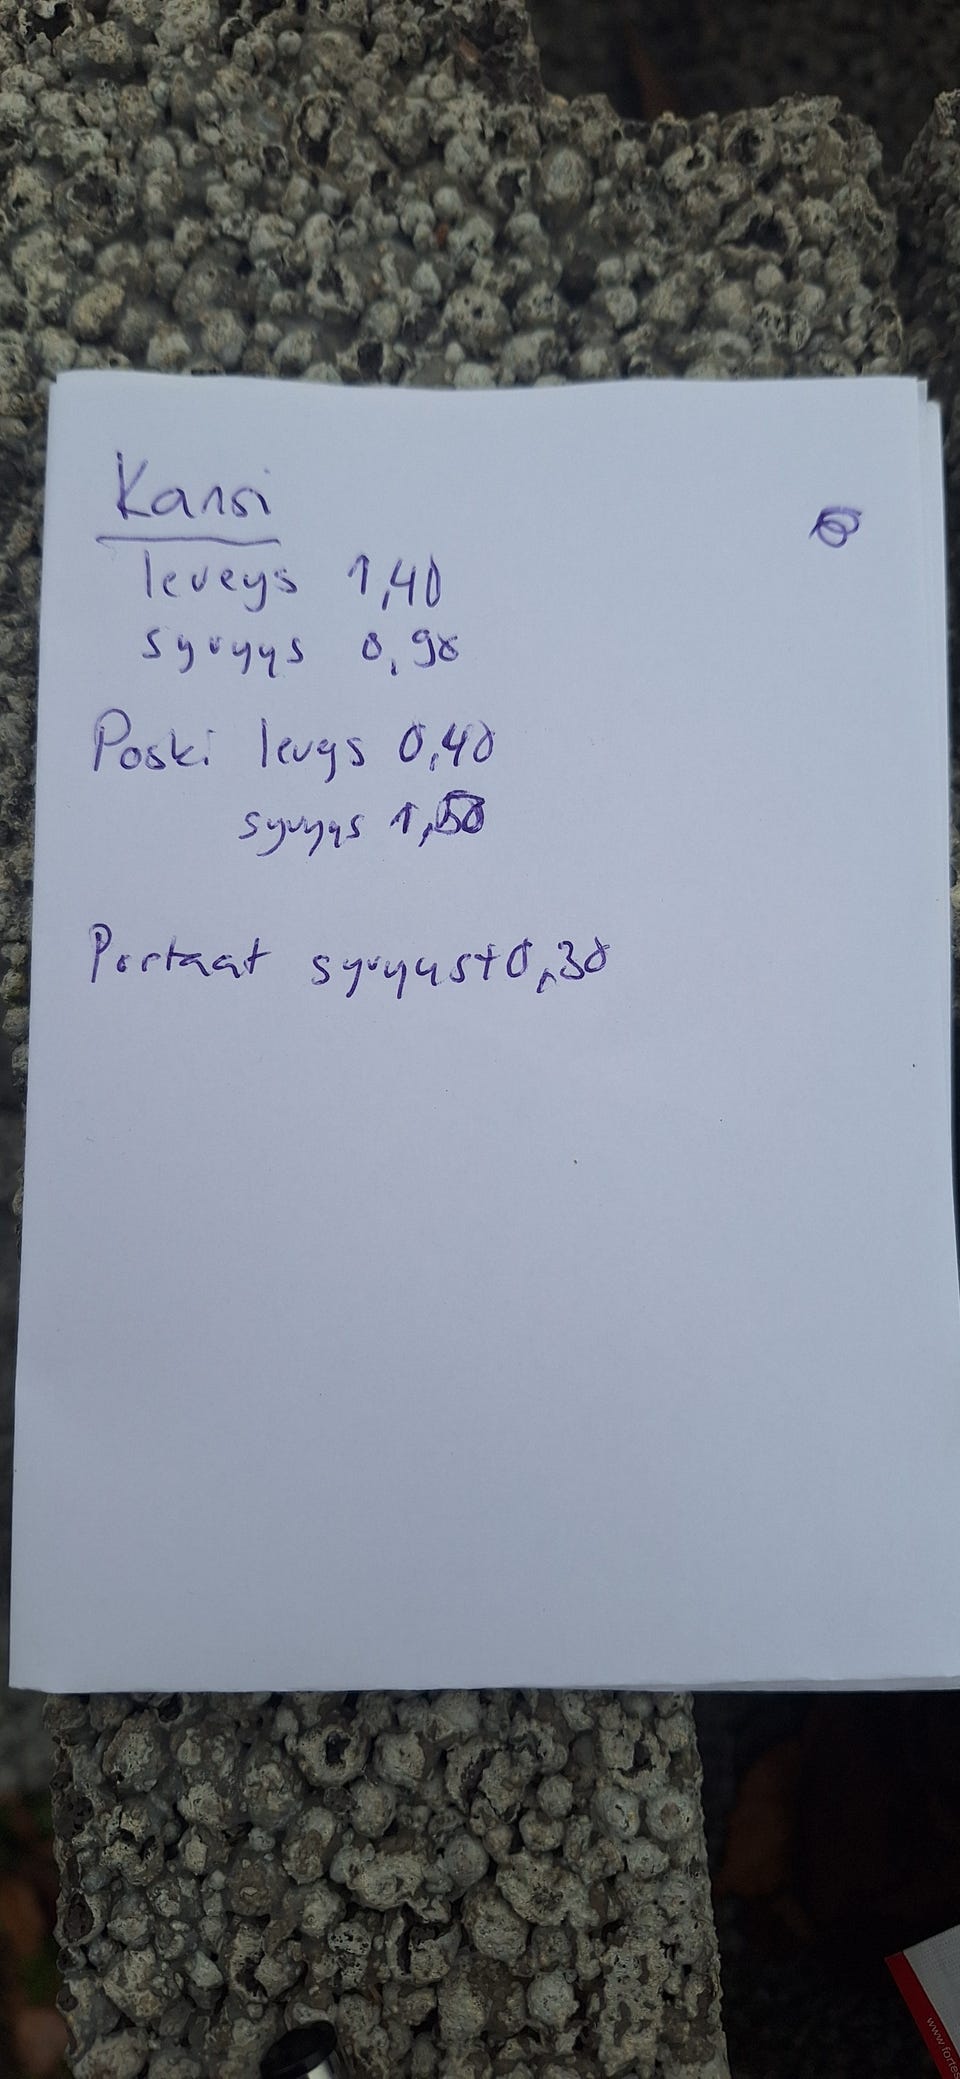 Kansi
leveys 1,40
syvyys 0,90
Poski levys 0,40
syvyys 1,50
Portaat syvyys+0,30
www.forte